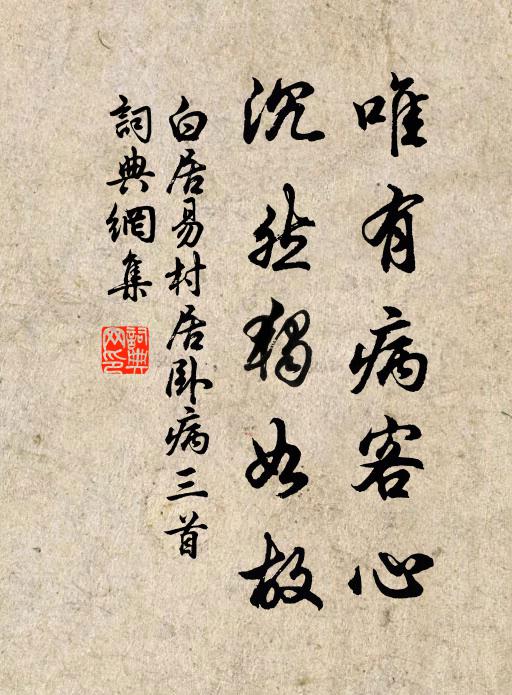 唯有病客心
沉然獨如故
白居易村居卧病三首
詞典網集
詞典網印